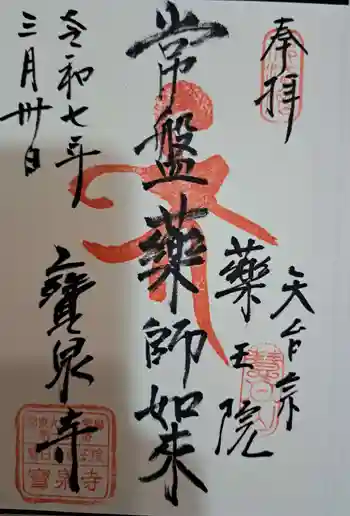 奉拝
天台宗
薬王院
常盤薬師如来
令和七年
三月卅日
寶泉寺
寶泉寺